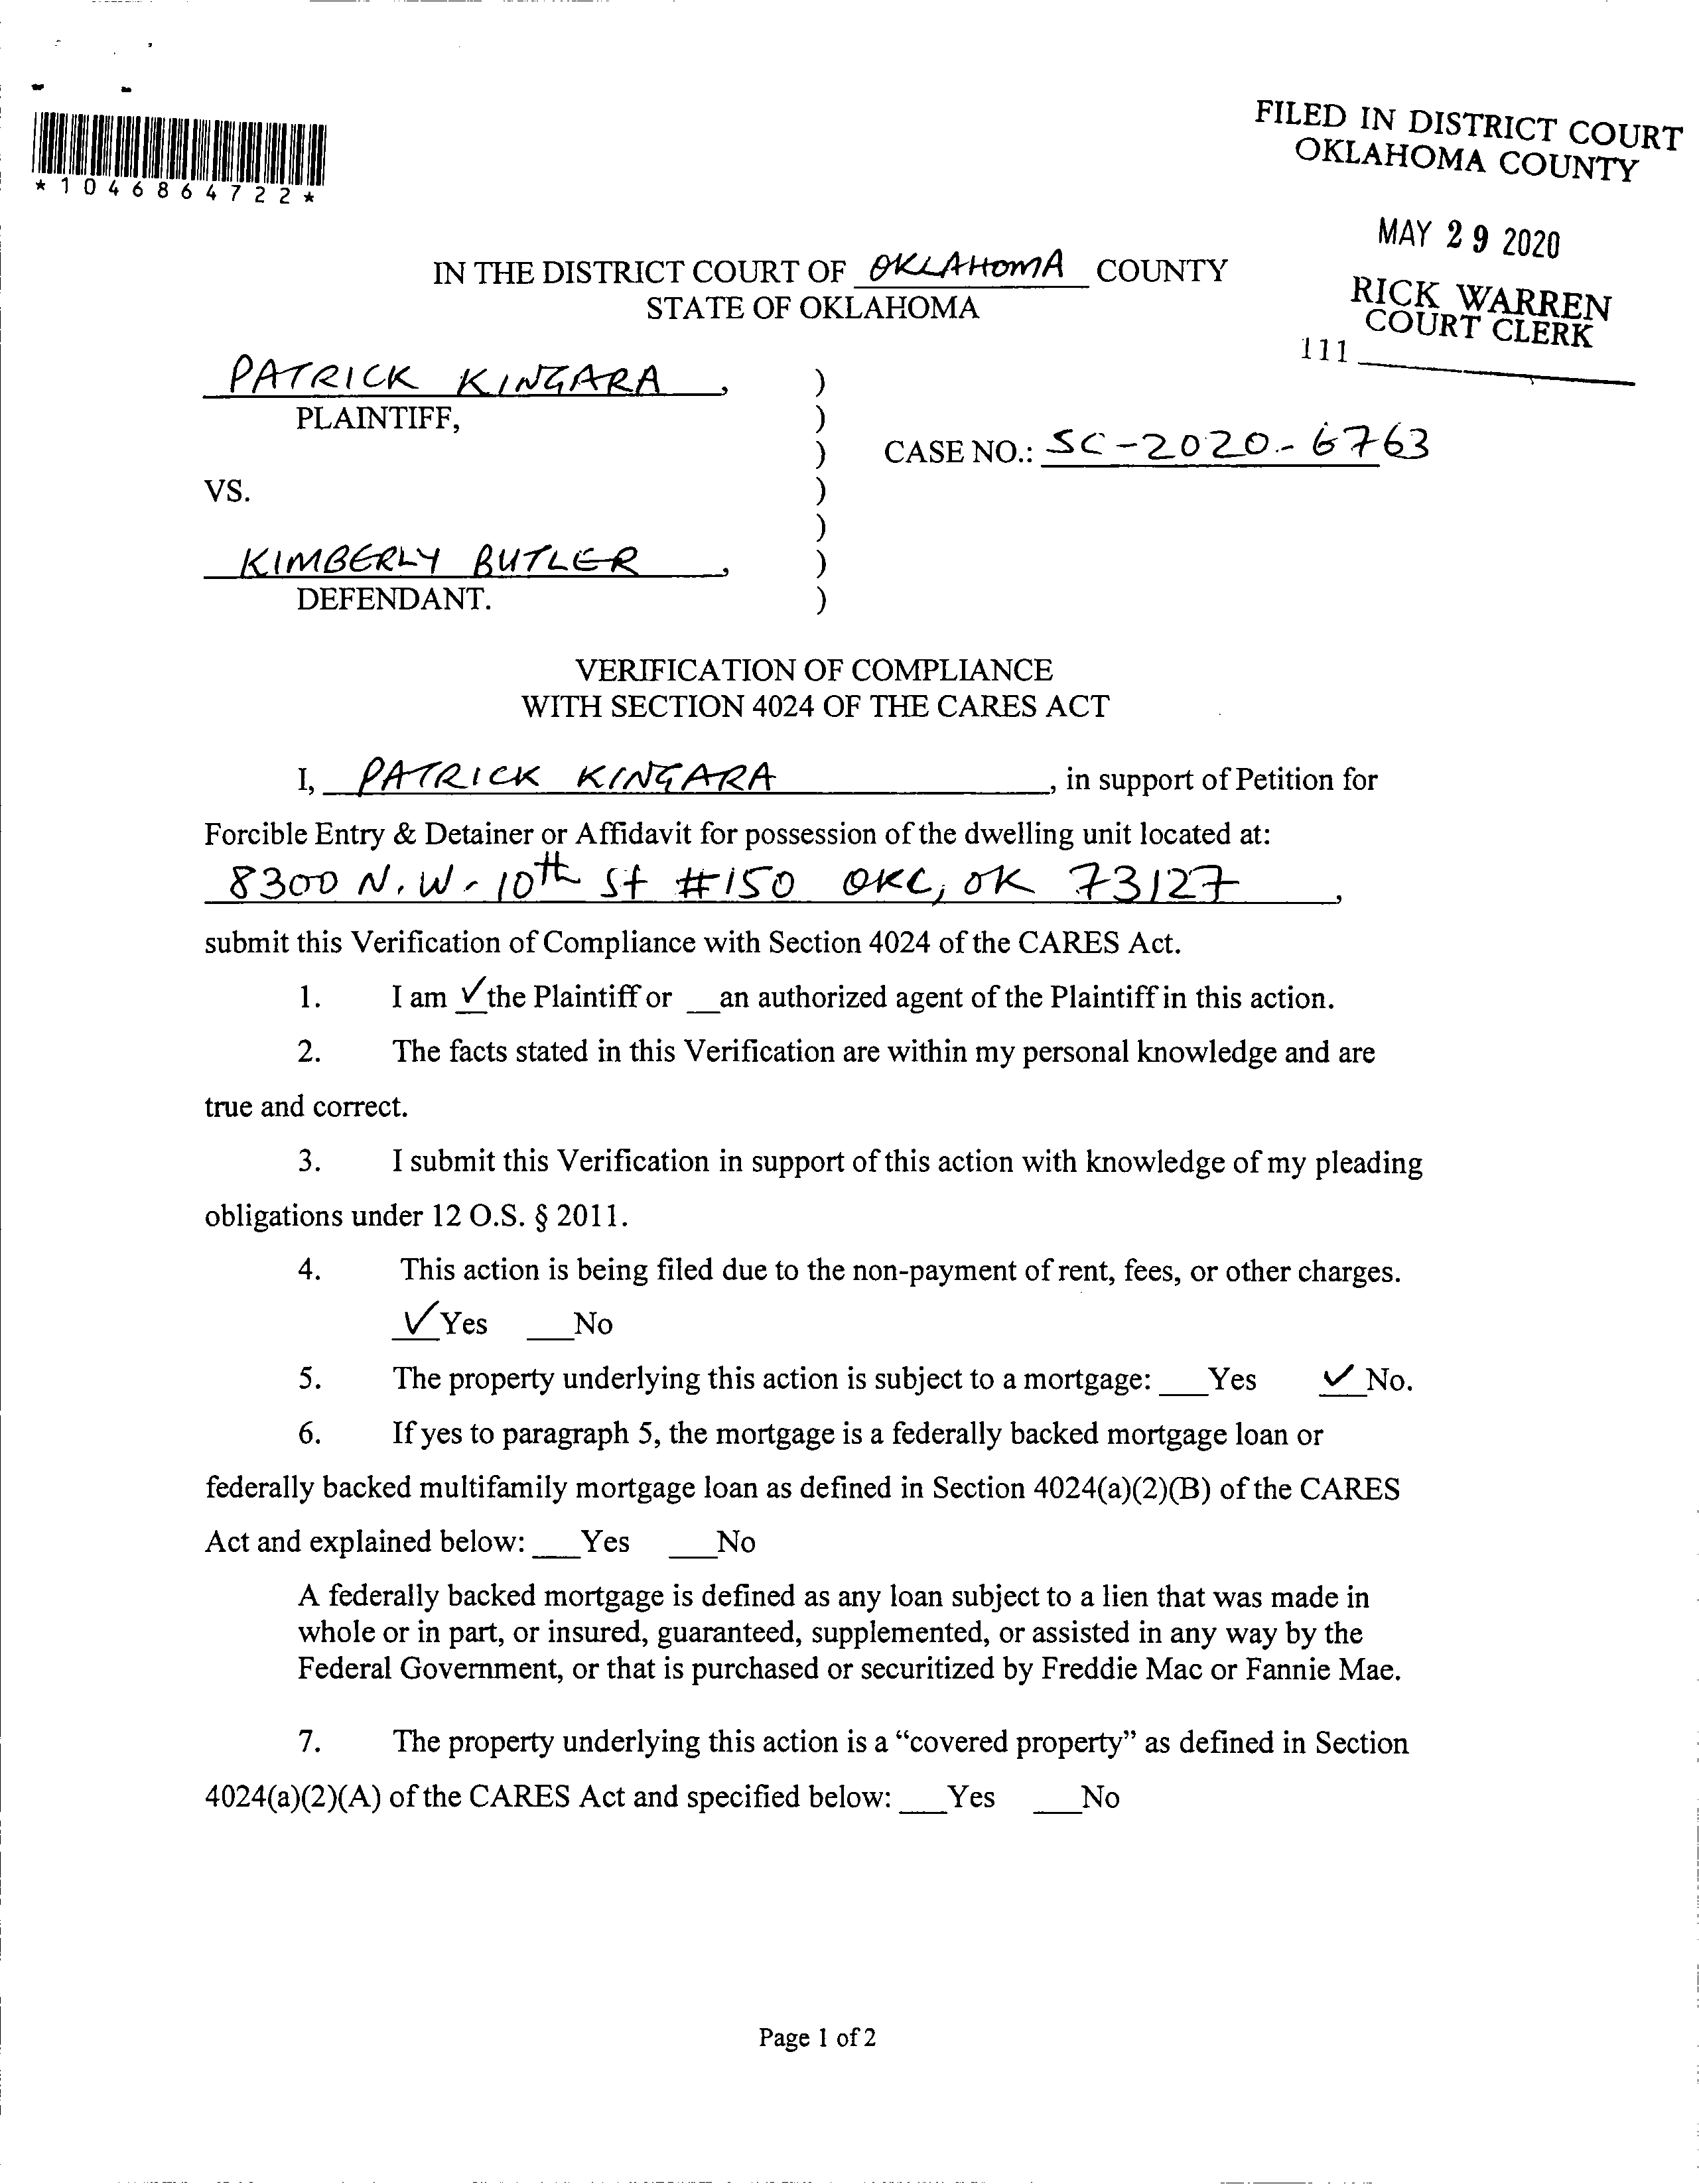 *1046864722*
FILED IN DISTRICT COURT
OKLAHOMA COUNTY
MAY 29 2020
RICK WARREN
COURT CLERK
111
IN THE DISTRICT COURT OF OKLAHOMA COUNTY
STATE OF OKLAHOMA
PATRICK KINGARA, )
PLAINTIFF, )
) CASE NO.: SC-2020-6763
VS. )
)
KIMBERLY BUTLER, )
DEFENDANT. )
VERIFICATION OF COMPLIANCE
WITH SECTION 4024 OF THE CARES ACT
I, PATRICK KINGARA, in support of Petition for
Forcible Entry & Detainer or Affidavit for possession of the dwelling unit located at:
8300 N.W. 10th St #150 OKC, OK 73127,
submit this Verification of Compliance with Section 4024 of the CARES Act.
1. I am ✓ the Plaintiff or __an authorized agent of the Plaintiff in this action.
2. The facts stated in this Verification are within my personal knowledge and are
true and correct.
3. I submit this Verification in support of this action with knowledge of my pleading
obligations under 12 O.S. § 2011.
4. This action is being filed due to the non-payment of rent, fees, or other charges.
✓ Yes ___No
5. The property underlying this action is subject to a mortgage: ___Yes ✓ No.
6. If yes to paragraph 5, the mortgage is a federally backed mortgage loan or
federally backed multifamily mortgage loan as defined in Section 4024(a)(2)(B) of the CARES
Act and explained below: ___Yes ___No
A federally backed mortgage is defined as any loan subject to a lien that was made in
whole or in part, or insured, guaranteed, supplemented, or assisted in any way by the
Federal Government, or that is purchased or securitized by Freddie Mac or Fannie Mae.
7. The property underlying this action is a “covered property” as defined in Section
4024(a)(2)(A) of the CARES Act and specified below: ___Yes ___No
Page 1 of 2